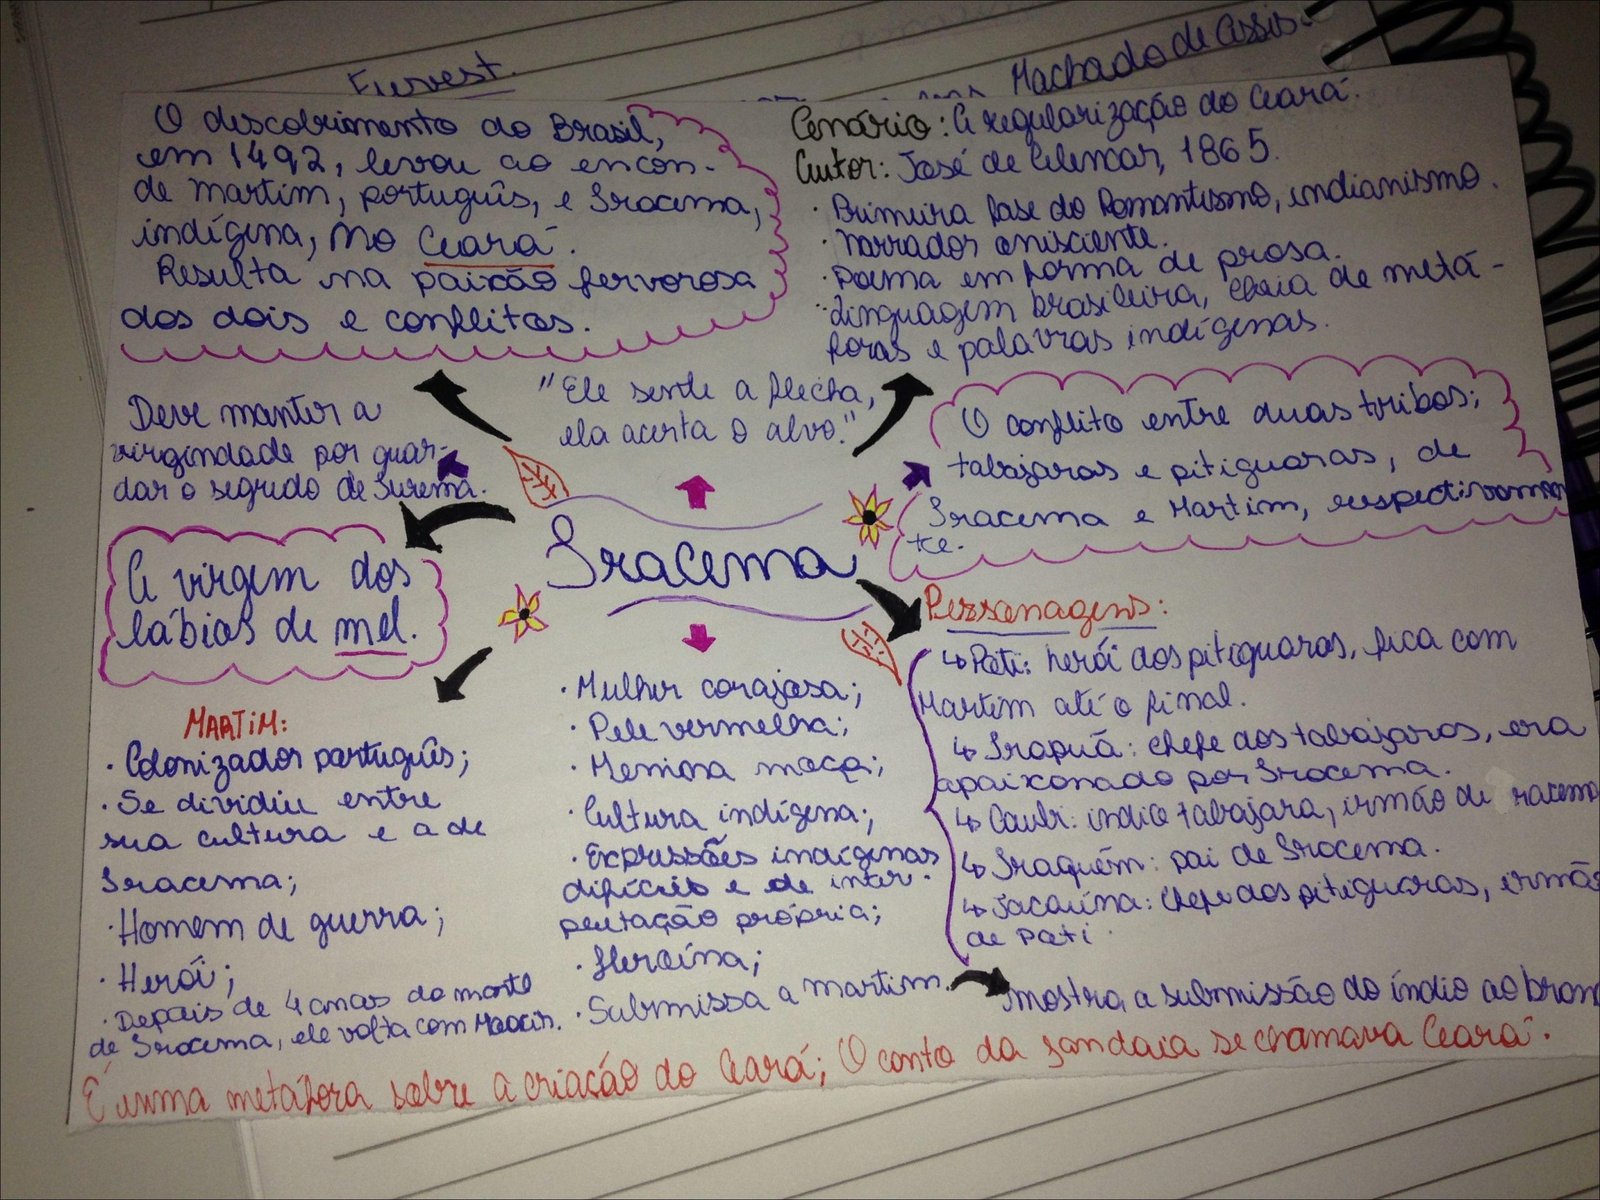 Fuvest.
Machado de Assis
O descobrimento do Brasil,
em 1492, levou ao encon-
de Martim, português, e Iracema,
indígena, no Ceará.
Resulta na paixão fervorosa
dos dois e conflitos.
Cenário: A regularização do Ceará.
Autor: José de Alencar, 1865.
· Primeira fase do Romantismo, indianismo.
· Narrador onisciente.
· Poema em forma de prosa.
· Linguagem brasileira, cheia de metá-
foras e palavras indígenas.
"Ele sente a flecha,
ela acerta o alvo."
Deve manter a
virgindade por guar-
dar o segredo de Jurema.
O conflito entre duas tribos;
tabajaras e pitiguaras, de
Iracema e Martim, respectivamen
te.
Iracema
A virgem dos
lábios de mel.
MARTIM:
· Colonizador português;
· Se dividiu entre
sua cultura e a de
Iracema;
· Homem de guerra;
· Herói;
· Depois de 4 anos da morte
de Iracema, ele volta com Moacir.
· Mulher corajosa;
· Pele vermelha;
· Menina moça;
· Cultura indígena;
· Expressões indígenas
difíceis e de inter-
pretação própria;
· Heroína;
· Submissa a Martim.
Personagens:
↳ Poti: herói dos pitiguaras, fica com
Martim até o final.
↳ Irapuã: chefe dos tabajaras, era
apaixonado por Iracema.
↳ Caubi: índio tabajara, irmão de racema
↳ Iraquém: pai de Iracema.
↳ Jacaúna: chefe dos pitiguaras, irmão
de Poti.
mostra a submissão do índio ao bran
É uma metáfora sobre a criação do Ceará; O canto da jandaia se chamava Ceará.